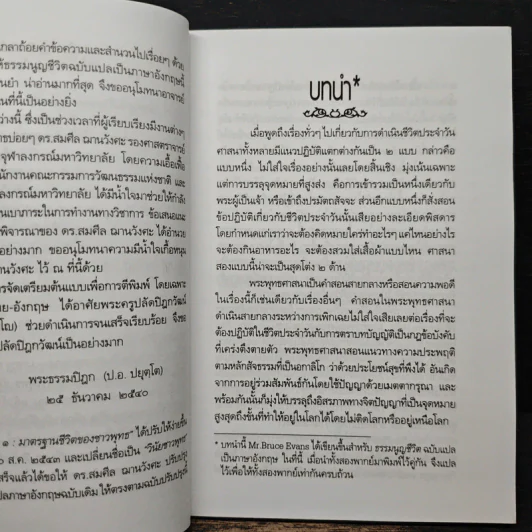 กลาถ้อยคำข้อความและสำนวนไปเรื่อยๆ ด้วย
ห้ธรรมนูญชีวิตฉบับแปลเป็นภาษาอังกฤษนี้
นยำ น่าอ่านมากที่สุด จึงขออนุโมทนาอาจารย์
นที่นี้เป็นอย่างยิ่ง
ว่างนี้ ซึ่งเป็นช่วงเวลาที่ผู้เรียบเรียงมีงานต่างๆ
าขบ่อยๆ ดร.สมศีล ฌานวังศะ รองศาสตราจารย์
จุฬาลงกรณ์มหาวิทยาลัย โดยความเอื้อเฟื้อ
นักงานคณะกรรมการวัฒนธรรมแห่งชาติ และ
ลงกรณ์มหาวิทยาลัย ได้มีน้ำใจมาช่วยให้กำลัง
นเบาภาระในการทำงานทางวิชาการ ข้อเสนอแนะ
พิจารณาของ ดร.สมศีล ฌานวังศะ ได้อำนวย
อย่างมาก ขออนุโมทนาความมีน้ำใจเกื้อหนุน
านวังศะ ไว้ ณ ที่นี้ด้วย
จัดเตรียมต้นแบบเพื่อการตีพิมพ์ โดยเฉพาะ
ย-อังกฤษ ได้อาศัยพระครูปลัดปิฎกวัฒน์
โญ) ช่วยดำเนินการจนเสร็จเรียบร้อย จึงขอ
ปิฎกวัฒน์เป็นอย่างมาก
พระธรรมปิฎก (ป.อ. ปยุตฺโต)
๒๕ ธันวาคม ๒๕๔๐
๑ : มาตรฐานชีวิตของชาวพุทธ" ได้ปรับให้ง่ายขึ้น
๐ ส.ค. ๒๕๔๓ และเปลี่ยนชื่อเป็น "วินัยชาวพุทธ"
สร็จแล้วได้ขอให้ ดร.สมศีล ฌานวังศะ ปรับปรุง
ปลภาษาอังกฤษฉบับเดิม ให้ตรงตามฉบับปรับปรุงนี้
บทนำ*
เมื่อพูดถึงเรื่องทั่วๆ ไปเกี่ยวกับการดำเนินชีวิตประจำวัน
ศาสนาทั้งหลายมีแนวปฏิบัติแตกต่างกันเป็น ๒ แบบ กล่าวคือ
แบบหนึ่ง ไม่ใส่ใจเรื่องอย่างนั้นเลยโดยสิ้นเชิง มุ่งเน้นเฉพาะ
แต่การบรรลุจุดหมายที่สูงส่ง คือการเข้ารวมเป็นหนึ่งเดียวกับ
พระผู้เป็นเจ้า หรือเข้าถึงปรมัตถสัจจะ ส่วนอีกแบบหนึ่งก็สั่งสอน
ข้อปฏิบัติเกี่ยวกับชีวิตประจำวันนั้นเสียอย่างละเอียดพิสดาร
โดยกำหนดแก่เราว่าจะต้องคิดหมายใคร่ทำอะไรๆ แค่ไหนอย่างไร
จะต้องกินอาหารอะไร จะต้องสวมใส่เสื้อผ้าแบบไหน ศาสนา
สองแบบนี้น่าจะเป็นสุดโต่ง ๒ ด้าน
พระพุทธศาสนาเป็นคำสอนสายกลางหรือสอนความพอดี
ในเรื่องนี้ก็เช่นเดียวกับเรื่องอื่นๆ คำสอนในพระพุทธศาสนา
ดำเนินสายกลางระหว่างการเพิกเฉยไม่ใส่ใจเสียเลยต่อเรื่องที่จะ
ต้องปฏิบัติในชีวิตประจำวันกับการตราบทบัญญัติเป็นกฎข้อบังคับ
ที่เคร่งตึงตายตัว พระพุทธศาสนาสอนแนวทางความประพฤติ
ตามหลักสัจธรรมที่เป็นอกาลิโก ว่าด้วยประโยชน์สุขที่พึงได้ อันเกิด
จากการอยู่ร่วมสัมพันธ์กันโดยใช้ปัญญาด้วยเมตตากรุณา และ
พร้อมกันนั้นก็มุ่งให้บรรลุถึงอิสรภาพทางจิตปัญญาที่เป็นจุดหมาย
สูงสุดถึงขั้นที่ทำให้อยู่ในโลกได้โดยไม่ติดโลกหรืออยู่เหนือโลก
* บทนำนี้ Mr.Bruce Evans ได้เขียนขึ้นสำหรับ ธรรมนูญชีวิต ฉบับแปล
เป็นภาษาอังกฤษ ในที่นี้ เมื่อนำทั้งสองพากย์มาพิมพ์ไว้คู่กัน จึงแปล
ไว้เพื่อให้ทั้งสองพากย์เท่ากันครบถ้วน